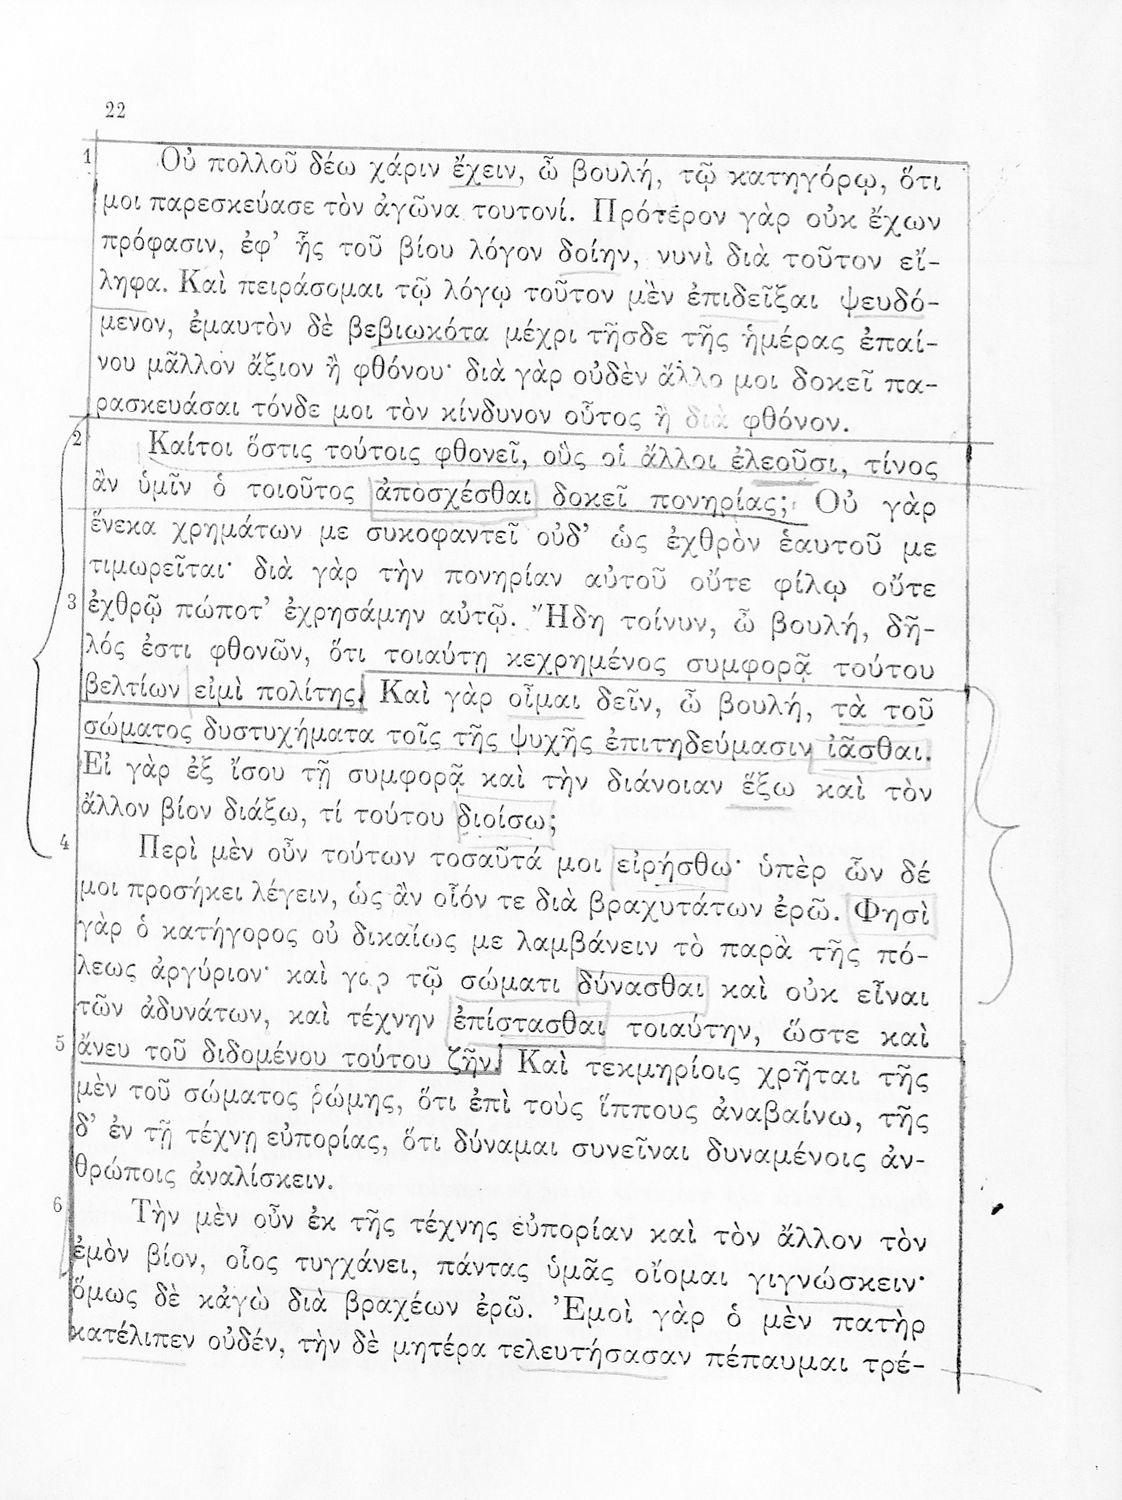 22
1 Οὐ πολλοῦ δέω χάριν ἔχειν, ὦ βουλή, τῷ κατηγόρῳ, ὅτι
μοι παρεσκεύασε τὸν ἀγῶνα τουτονί. Πρότερον γὰρ οὐκ ἔχων
πρόφασιν, ἐφ’ ἧς τοῦ βίου λόγον δοίην, νυνὶ διὰ τοῦτον εἴ-
ληφα. Καὶ πειράσομαι τῷ λόγῳ τοῦτον μὲν ἐπιδεῖξαι ψευδό-
μενον, ἐμαυτὸν δὲ βεβιωκότα μέχρι τῆσδε τῆς ἡμέρας ἐπαί-
νου μᾶλλον ἄξιον ἢ φθόνου· διὰ γὰρ οὐδὲν ἄλλο μοι δοκεῖ πα-
ρασκευάσαι τόνδε μοι τὸν κίνδυνον οὗτος ἢ διὰ φθόνον.
2 Καίτοι ὅστις τούτοις φθονεῖ, οὓς οἱ ἄλλοι ἐλεοῦσι, τίνος
ἂν ὑμῖν ὁ τοιοῦτος ἀποσχέσθαι δοκεῖ πονηρίας; Οὐ γὰρ
ἕνεκα χρημάτων με συκοφαντεῖ οὐδ’ ὡς ἐχθρὸν ἑαυτοῦ με
τιμωρεῖται· διὰ γὰρ τὴν πονηρίαν αὐτοῦ οὔτε φίλῳ οὔτε
3 ἐχθρῷ πώποτ’ ἐχρησάμην αὐτῷ. Ἤδη τοίνυν, ὦ βουλή, δῆ-
λός ἐστι φθονῶν, ὅτι τοιαύτῃ κεχρημένος συμφορᾷ τούτου
βελτίων εἰμὶ πολίτης. Καὶ γὰρ οἶμαι δεῖν, ὦ βουλή, τὰ τοῦ
σώματος δυστυχήματα τοῖς τῆς ψυχῆς ἐπιτηδεύμασιν ἰᾶσθαι.
Εἰ γὰρ ἐξ ἴσου τῇ συμφορᾷ καὶ τὴν διάνοιαν ἕξω καὶ τὸν
ἄλλον βίον διάξω, τί τούτου διοίσω;
4 Περὶ μὲν οὖν τούτων τοσαῦτά μοι εἰρήσθω· ὑπὲρ ὧν δέ
μοι προσήκει λέγειν, ὡς ἂν οἷόν τε διὰ βραχυτάτων ἐρῶ. Φησὶ
γὰρ ὁ κατήγορος οὐ δικαίως με λαμβάνειν τὸ παρὰ τῆς πό-
λεως ἀργύριον· καὶ γὰρ τῷ σώματι δύνασθαι καὶ οὐκ εἶναι
τῶν ἀδυνάτων, καὶ τέχνην ἐπίστασθαι τοιαύτην, ὥστε καὶ
5 ἄνευ τοῦ διδομένου τούτου ζῆν. Καὶ τεκμηρίοις χρῆται τῆς
μὲν τοῦ σώματος ῥώμης, ὅτι ἐπὶ τοὺς ἵππους ἀναβαίνω, τῆς
δ’ ἐν τῇ τέχνῃ εὐπορίας, ὅτι δύναμαι συνεῖναι δυναμένοις ἀν-
θρώποις ἀναλίσκειν.
6 Τὴν μὲν οὖν ἐκ τῆς τέχνης εὐπορίαν καὶ τὸν ἄλλον τὸν
ἐμὸν βίον, οἷος τυγχάνει, πάντας ὑμᾶς οἴομαι γιγνώσκειν·
ὅμως δὲ κἀγὼ διὰ βραχέων ἐρῶ. Ἐμοὶ γὰρ ὁ μὲν πατὴρ
κατέλιπεν οὐδέν, τὴν δὲ μητέρα τελευτήσασαν πέπαυμαι τρέ-